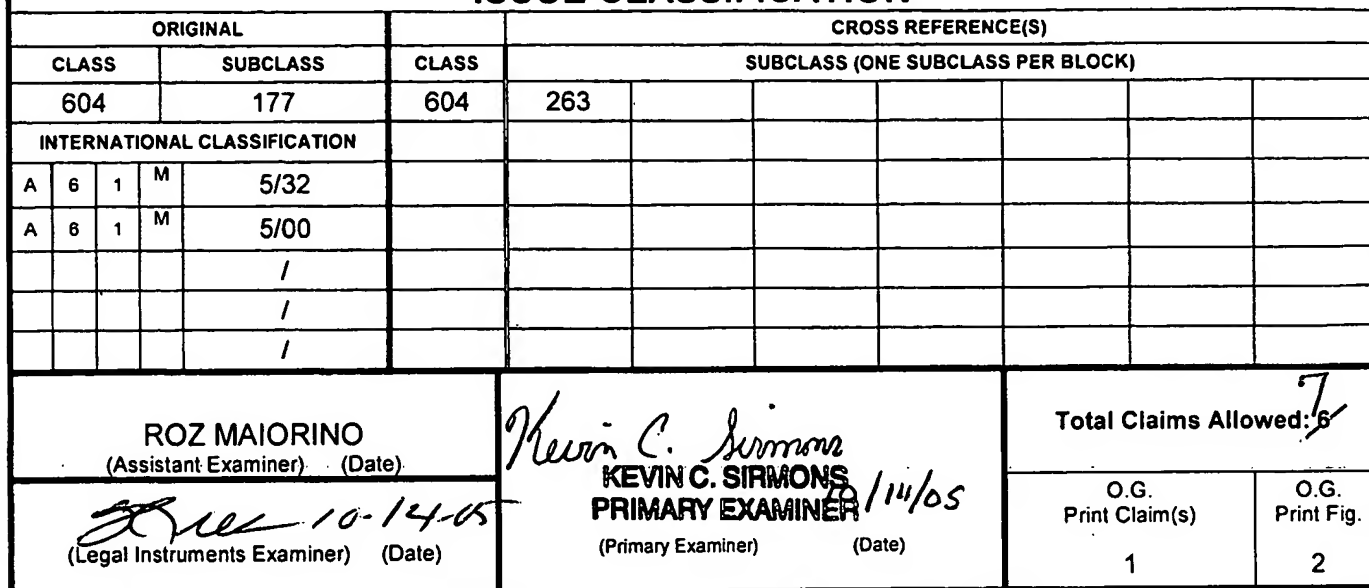 ISSUE CLASSIFICATION
ORIGINAL CROSS REFERENCE(S)
CLASS SUBCLASS CLASS SUBCLASS (ONE SUBCLASS PER BLOCK)
604 177 604 263
INTERNATIONAL CLASSIFICATION
A 6 1 M 5/32
A 6 1 M 5/00
/
/
/
ROZ MAIORINO
(Assistant Examiner) (Date)
10-14-05
(Legal Instruments Examiner) (Date)
Kevin C. Sirmons
KEVIN C. SIRMONS
PRIMARY EXAMINER 10/14/05
(Primary Examiner) (Date)
Total Claims Allowed: 6 7
O.G. Print Claim(s)
1
O.G. Print Fig.
2